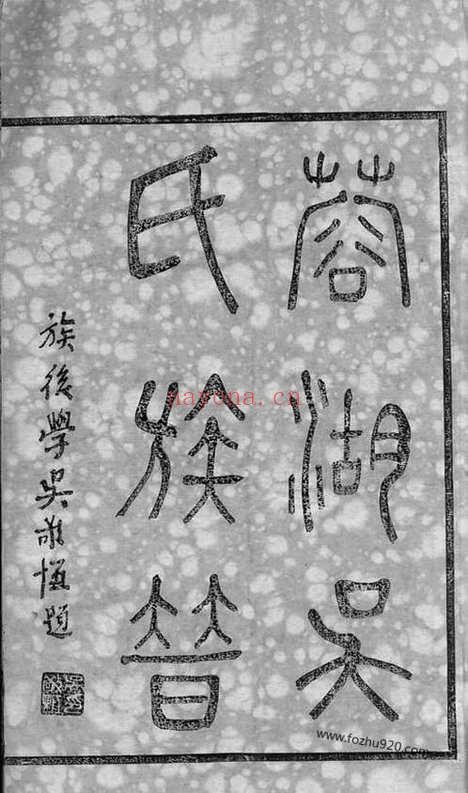 蓉湖吳
氏族普
族後學吳敬恆題
nayona.cn
www.fozhu920.com